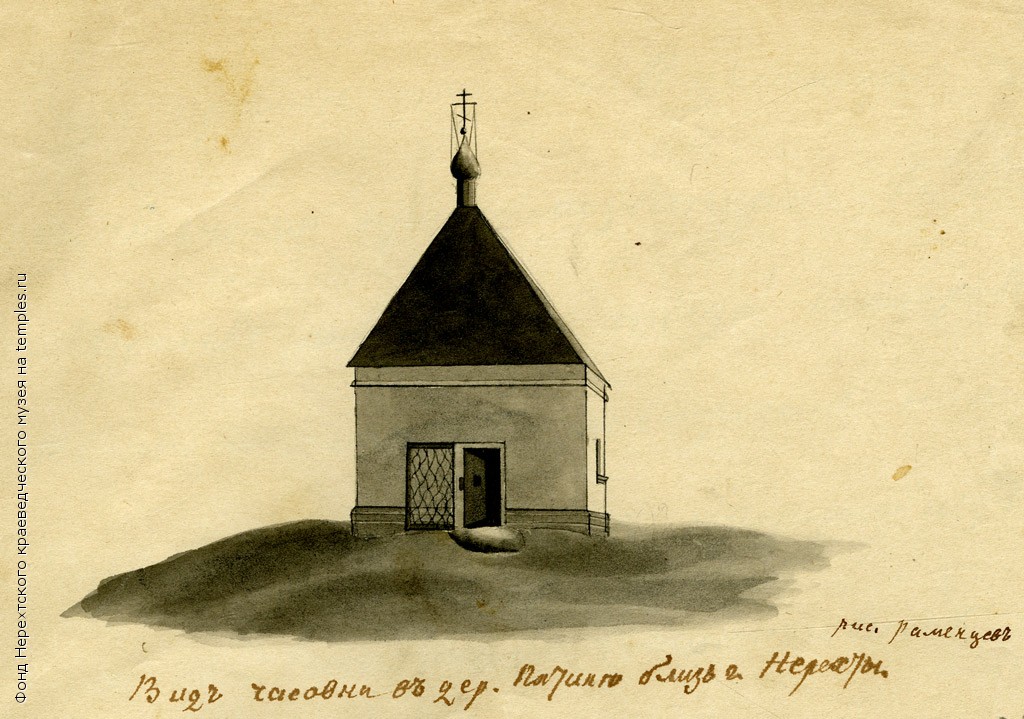 Фонд Нерехтского краеведческого музея на temples.ru
рис. Раменцевъ
Видъ часовни въ дер. близь г. Нерехты.